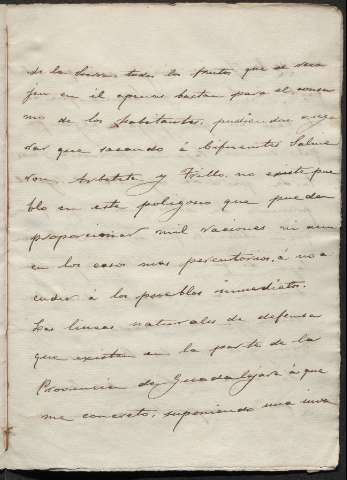 de la Sierra, todos los frutos que se reco
jen en él apenas bastan para el consu
mo de los habitantes, pudiendo asegu
rar que sacando á Cifuentes, Salme
ron, Arbeteta y Trillo, no existe pue
blo en este poligono que puedan
proporcionar mil raciones ni aun
en los casos mas perentorios, á no a
cudir á los pueblos inmediatos.
Las lineas naturales de defensa
que existen en la parte de la
Provincia de Guadalajara á que
me concreto, suponiendo una inva